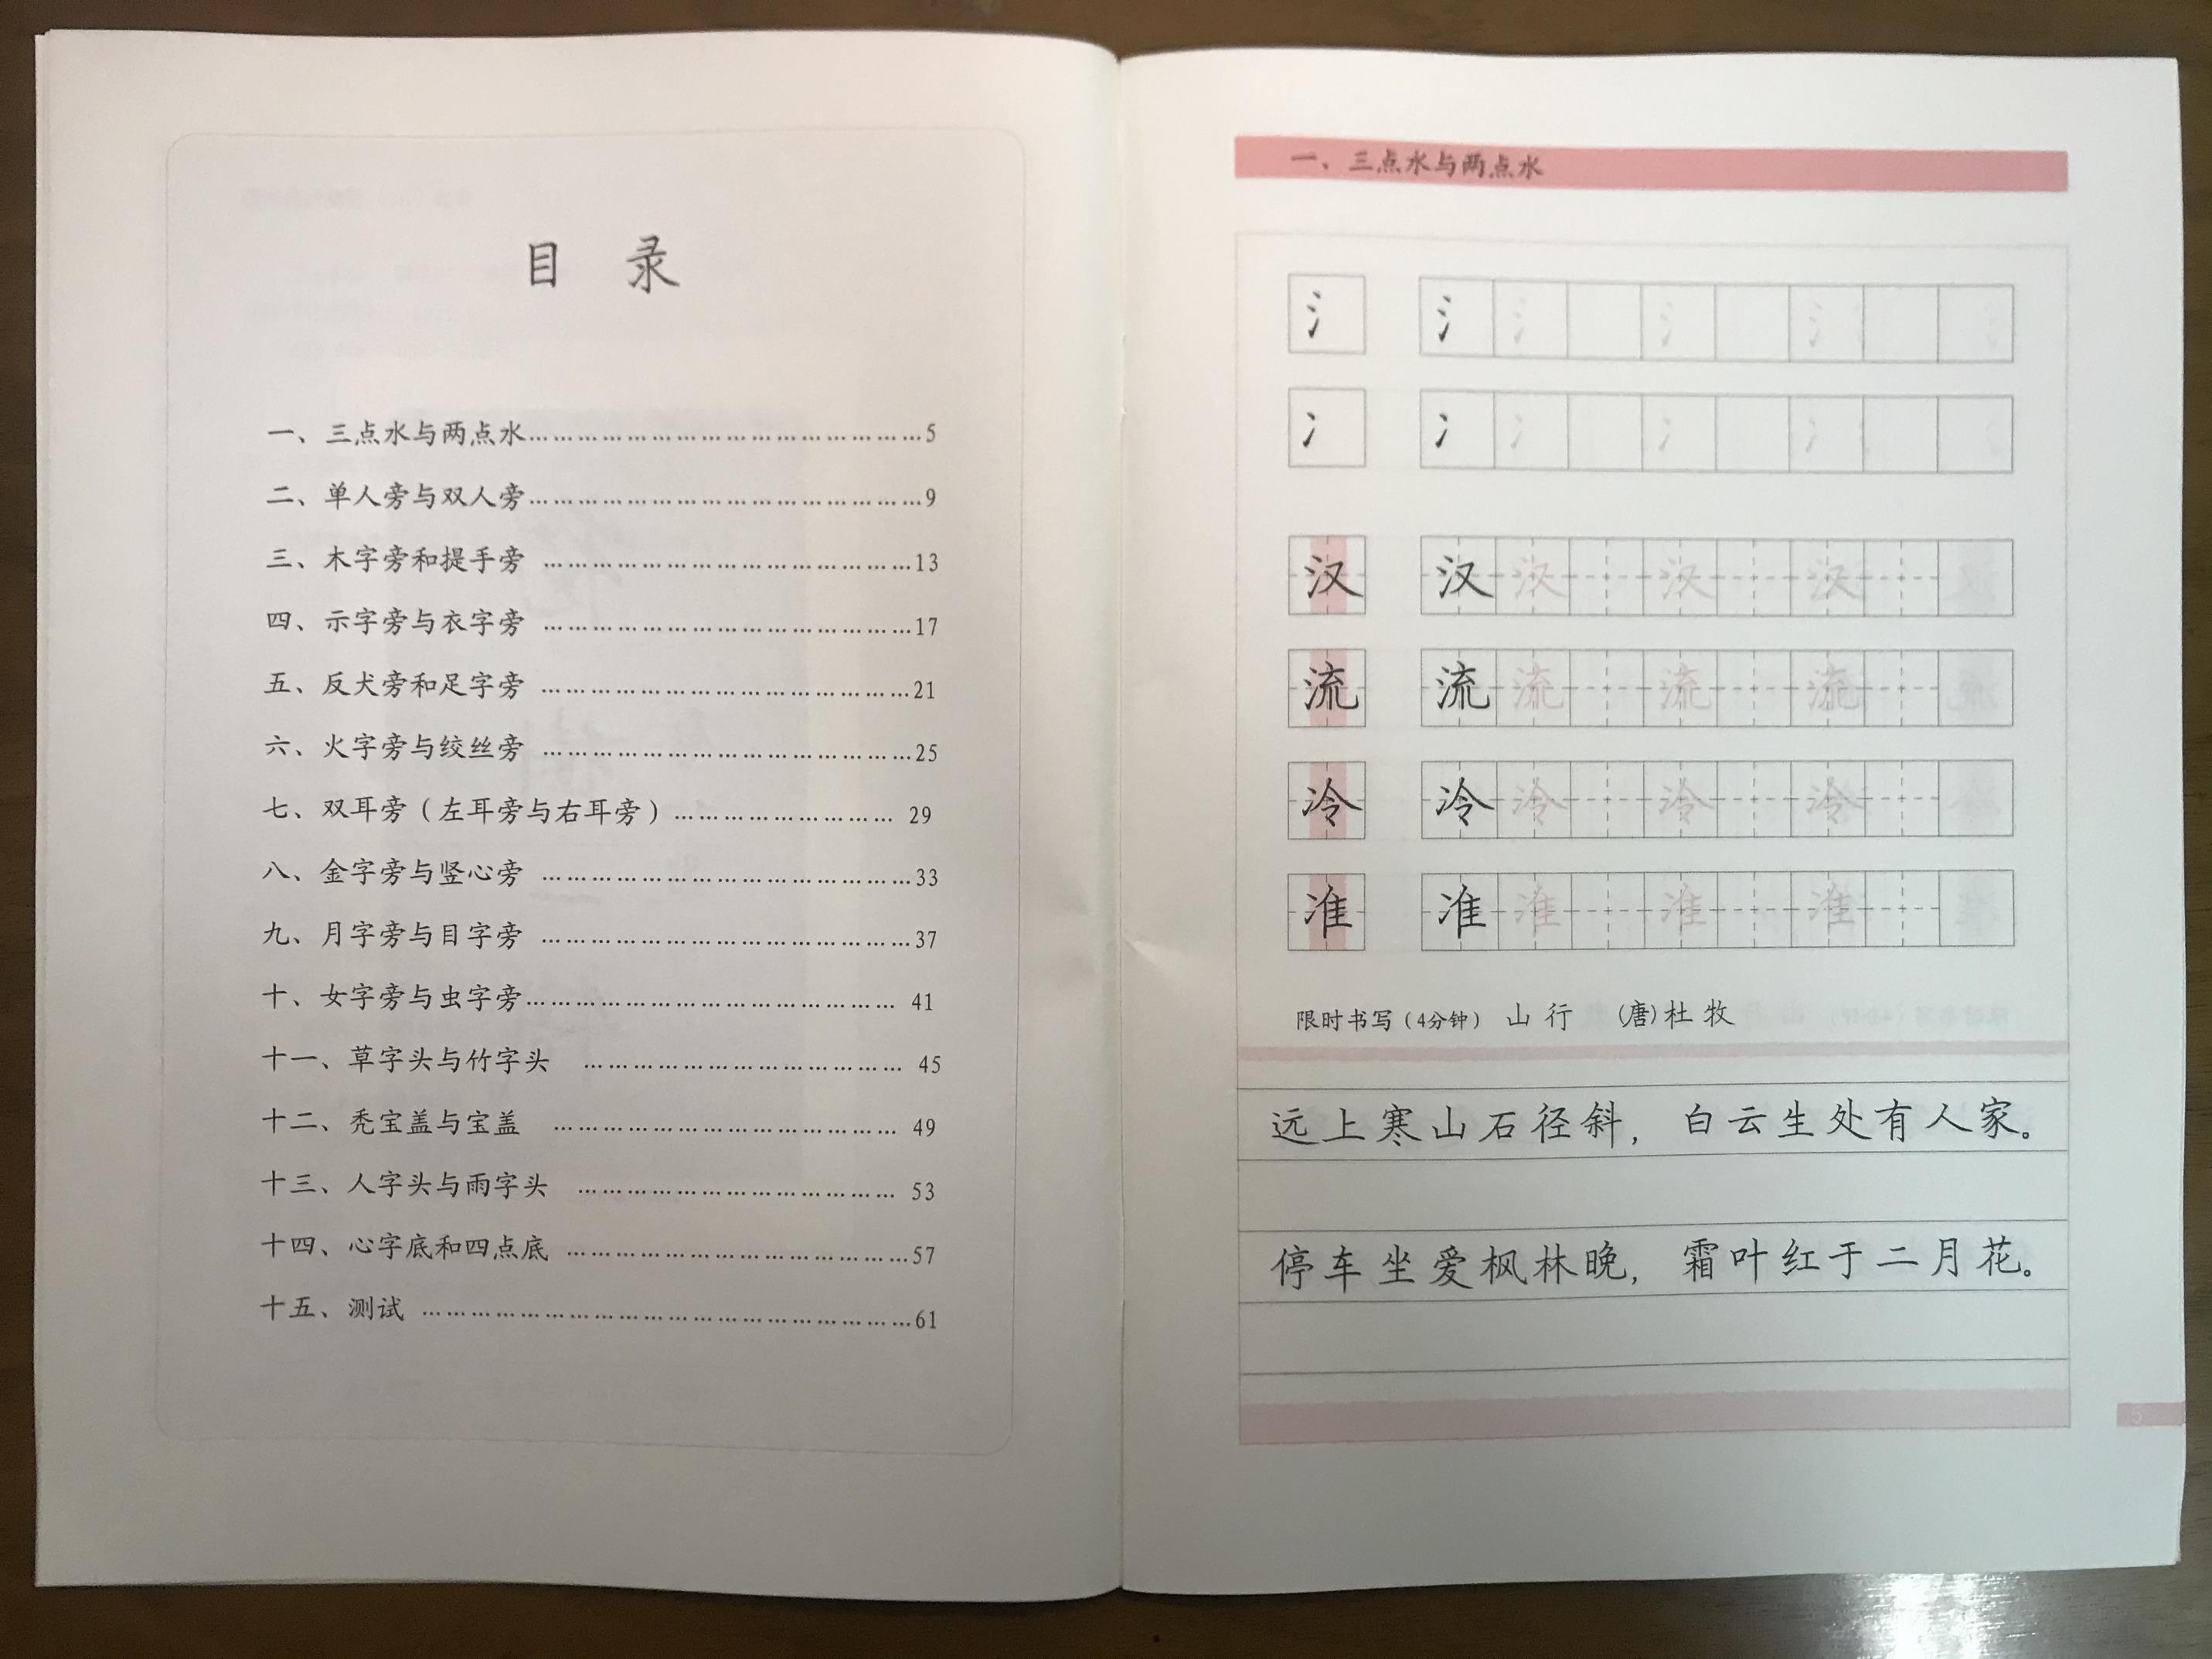 目 录
一、三点水与两点水………………………………………5
二、单人旁与双人旁………………………………………9
三、木字旁和提手旁 ……………………………………13
四、示字旁与衣字旁 ……………………………………17
五、反犬旁和足字旁 ……………………………………21
六、火字旁与绞丝旁 ……………………………………25
七、双耳旁（左耳旁与右耳旁）……………………… 29
八、金字旁与竖心旁 ……………………………………33
九、月字旁与目字旁 ……………………………………37
十、女字旁与虫字旁…………………………………… 41
十一、草字头与竹字头 ……………………………… 45
十二、秃宝盖与宝盖 ………………………………… 49
十三、人字头与雨字头 ……………………………… 53
十四、心字底和四点底 …………………………………57
十五、测试 ………………………………………………61
一、三点水与两点水
氵 氵 氵 氵 氵
冫 冫 冫 冫 冫
汉 汉 汉 汉 汉
流 流 流 流 流
冷 冷 冷 冷 冷
准 准 准 准 准
限时书写（4分钟） 山行 （唐）杜牧
远上寒山石径斜，白云生处有人家。
停车坐爱枫林晚，霜叶红于二月花。
5